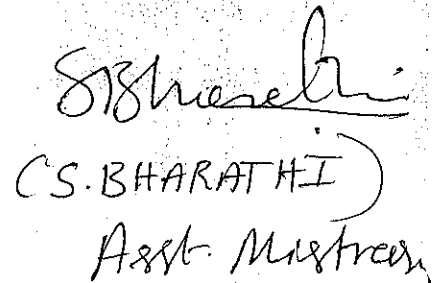 SBharathi
(S.BHARATHI)
Asst. Mistress